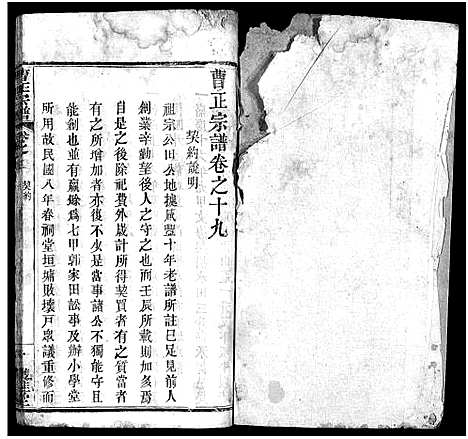 曹正宗譜卷之十九
契約說明
祖宗公田公地據咸豐十年老譜所註已足見前人
創業辛勤望後人之守之也而壬辰所載則加多焉
良是之後除祀費外歲計所得契買者有之質當者
有之所增加者亦復不少是當事諸公不獨能守且
能創也並有贏餘為七甲郭家田訟事及辦小學堂
所用故民國八年春祠堂垣墉敗壞戶眾議重修而
曹正宗譜
契約
一